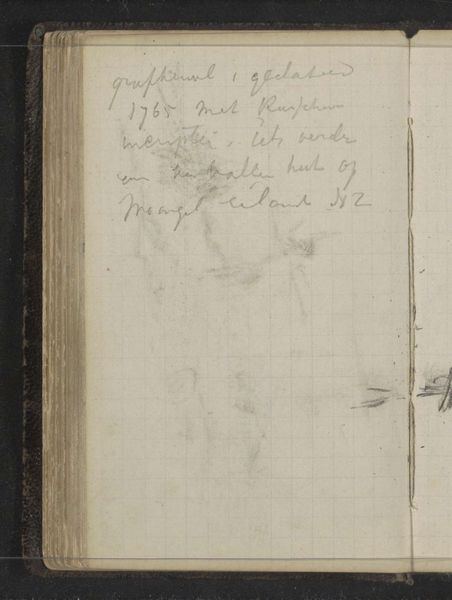 grafheuvel, gedateerd
1765 met Russchen
inscriptie. iets verder
een vervallen hut op
eiland NZ